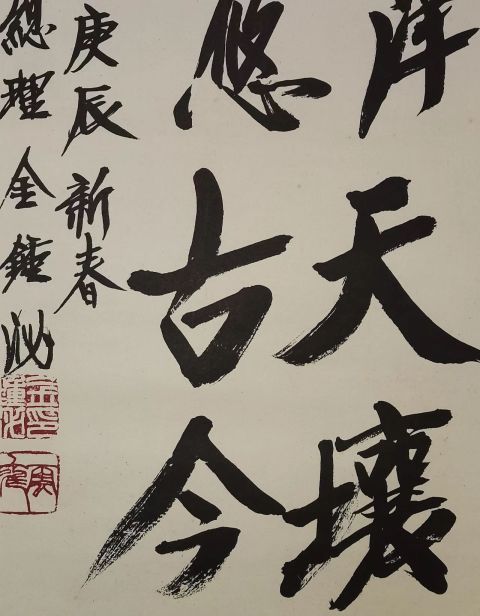 天壤
悠古今
庚辰 新春
總理 金鍾泌